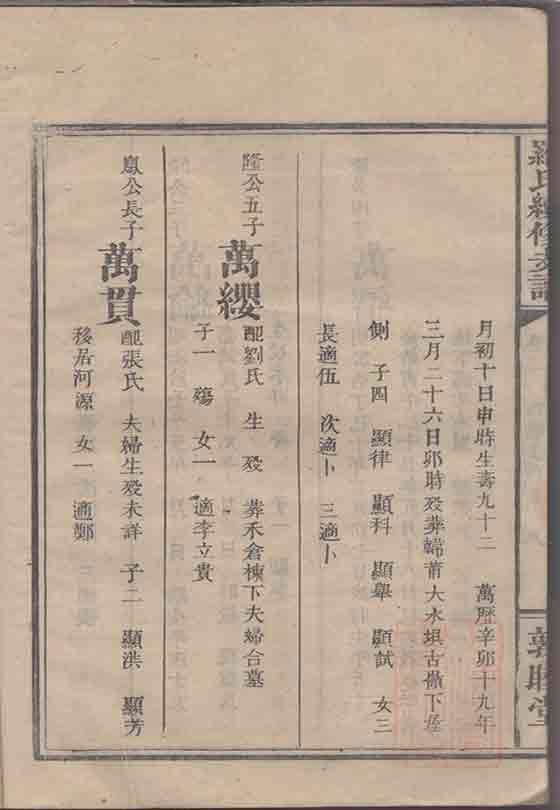 羅氏續修支譜
敦睦堂
月初十日申時生壽九十二 萬歷辛卯十九年
三月二十六日卯時殁葬 大水 古 下
側 子四 顯律 顯科 顯舉 顯試 女三
長適伍 次適卜 三適卜
隆公五子 萬纓 配劉氏 生 殁 葬禾倉棟下夫婦合墓
子一 殤 女一 適李立貴
公長子 萬貫 配張氏 夫婦生殁未詳 子二 顯洪 顯芳
移居河源 女一 適鄭